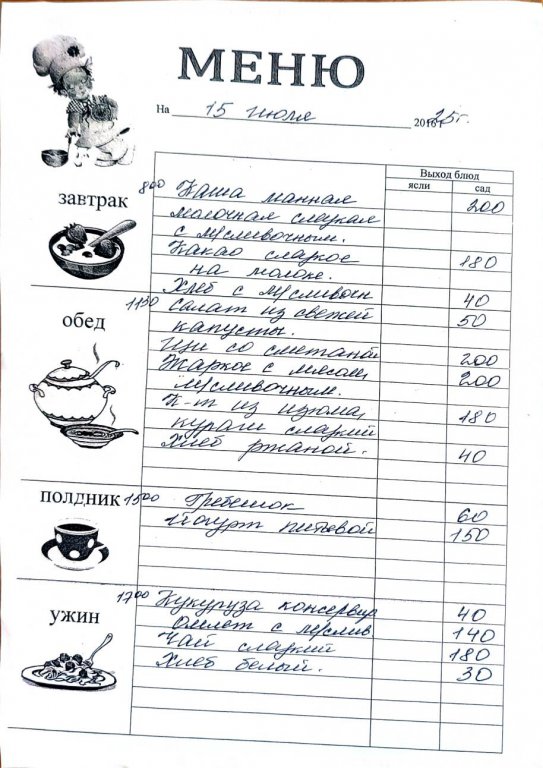 МЕНЮ
На 15 июля 2016 г 25г.
Выход блюд
ясли сад
завтрак 800 Каша манная 200
молочная сладкая
с м/сливочным.
Какао сладкое 180
на молоке.
Хлеб с м/сливочн 40
обед 1130 Салат из свежей 50
капусты.
Щи со сметаной 200
Жаркое с мясом, 200
м/сливочным.
К-т из изюма, 180
кураги сладкий
Хлеб ржаной. 40
полдник 1500 Гребешок 60
Йогурт питьевой 150
ужин 1700 Кукуруза консервир 40
Омлет с м/слив 140
Чай сладкий 180
Хлеб белый. 30